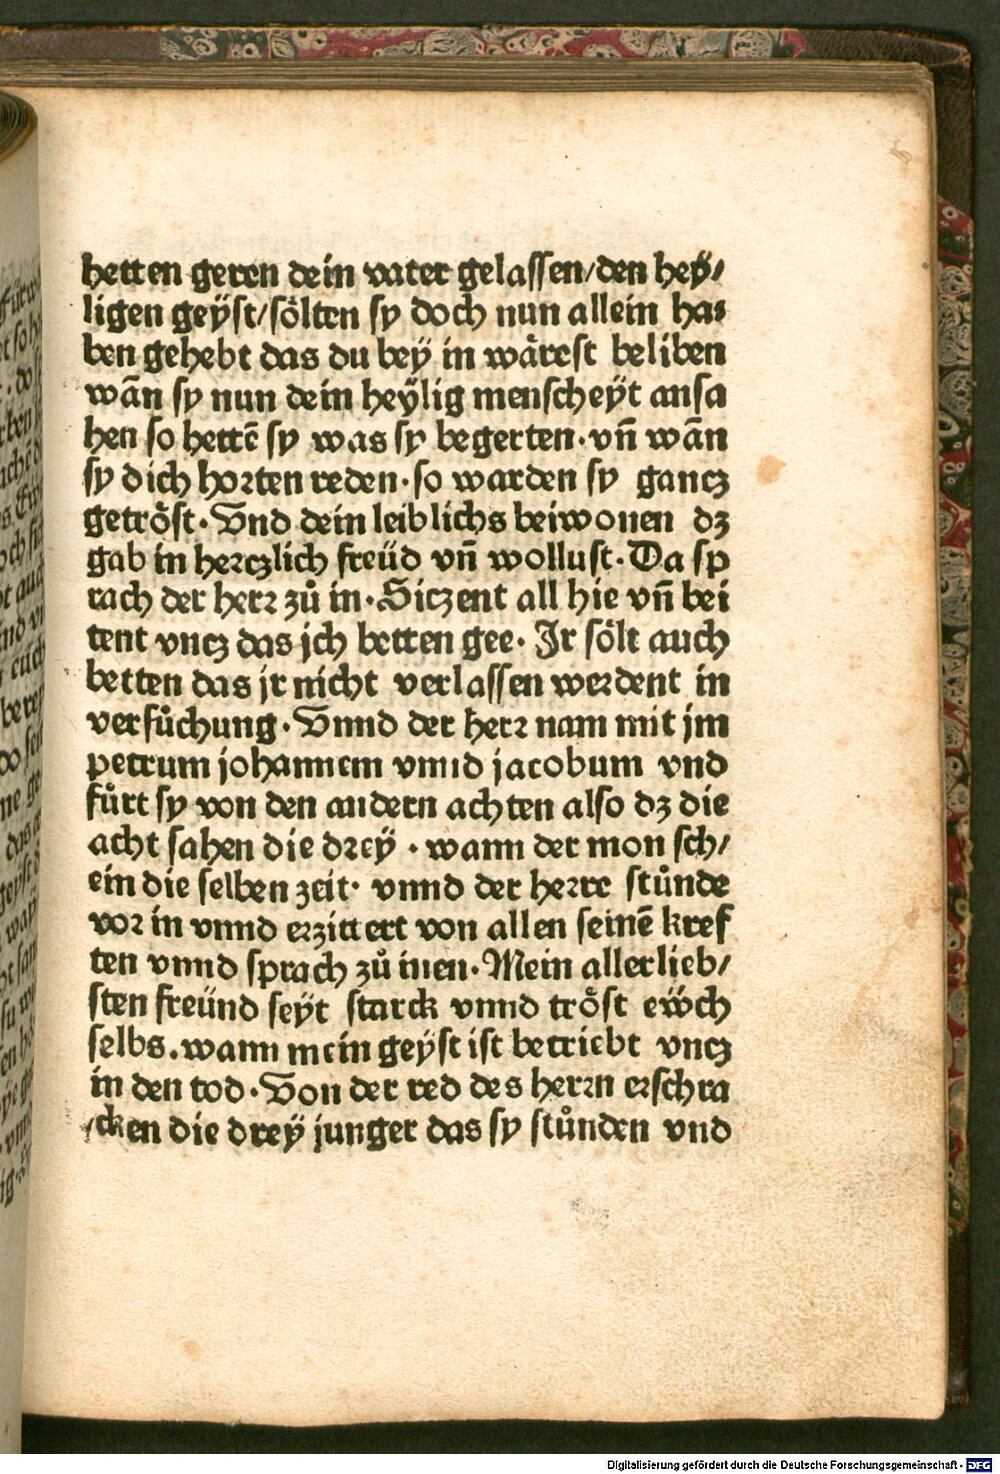 hetten geren dein vater gelassen/den hey̋/
ligen gey̋st/sölten sy doch nun allein ha⸗
ben gehebt das du bey̋ in wärest beliben
wān sy nun dein hey̋lig menschey̋t ansa
hen so hettē sy was sy begerten·vn̄ wān
sy dich horten reden·so warden sy gancz
getröst·Vnd dein leiblichs beiwonen dz
gab in herczlich freüd vn̄ wollust·Da sp
rach der herr zů in·Siczent all hie vn̄ bei
tent vncz das jch betten gee·Ir sölt auch
betten das jr nicht verlassen werdent in
versůchung·Vnnd der herr nam mit jm
petrum johannem vnnd jacobum vnd
fůrt sy von den andern achten also dz die
acht sahen die drey̋·wann der mon sch/
ein die selben zeit·vnnd der herre stůnde
vor in vnnd erzittert von allen seinē kref
ten vnnd sprach zů inen·Mein allerlieb/
sten freünd sey̋t starck vnnd tröst eẅch
selbs.wann mein gey̋st ist betriebt vncz
in den tod·Von der red des herrn erschra
/cken die drey̋ junger das sy stůnden vnd
Digitalisierung gefördert durch die Deutsche Forschungsgemeinschaft - DFG